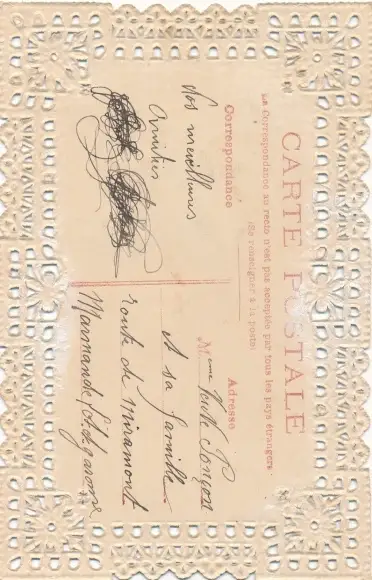 CARTE POSTALE
La Correspondance au recto n'est pas acceptée par tous les pays étrangers
(Se renseigner à la poste)
Correspondance
Nos meilleures
Amitiés
Adresse
Mme Veuve
et sa famille
route de Miramont
Marmande, Lot et garonne